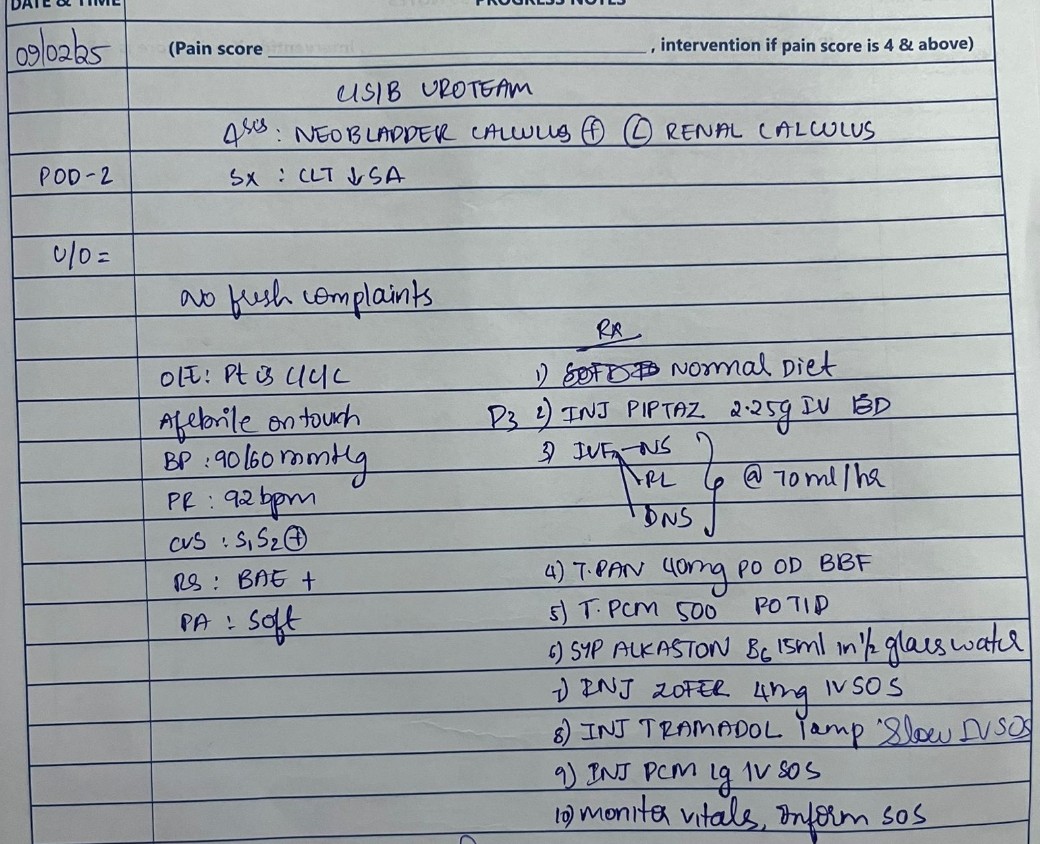 DATE & TIME
PROGRESS NOTES
09/02/25
(Pain score ____________, intervention if pain score is 4 & above)
C/S/B UROTEAM
Δsis : NEOBLADDER CALCULUS (+) (L) RENAL CALCULUS
POD-2
Sx : CLT ↓ SA
U/O =
No fresh complaints
Rx
O/E: Pt is C/C/C
1) Normal Diet
Afebrile on touch
D3 2) INJ PIPTAZ 2.25g IV BD
BP : 90/60 mmHg
3) IVF NS
RL @ 70 ml/hr
PR : 92 bpm
DNS
CVS : S1S2 (+)
RS : BAE +
4) T.PAN 40mg PO OD BBF
PA : Soft
5) T.PCM 500 PO TID
6) SYP ALKASTON B6 15ml in 1/2 glass water
7) INJ ZOFER 4mg IV SOS
8) INJ TRAMADOL 1amp Slow IV SOS
9) INJ PCM 1g IV SOS
10) monitor vitals, Inform SOS